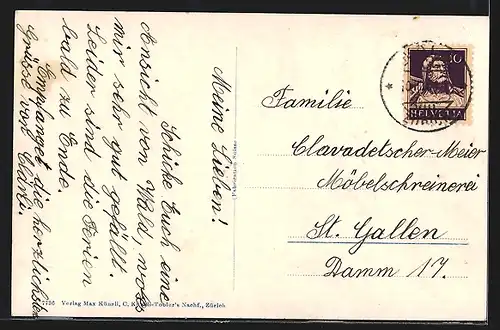 Meine Lieben!
Schicke Euch eine
Ansicht von Wald, wo es
mir sehr gut gefällt.
Leider sind die Ferien
bald zu Ende.
Empfanget die herzlichsten
Grüsse von
Familie
Clavadetscher-Meier
Möbelschreinerei
St. Gallen
Damm 17.
10
HELVETIA
7756 Verlag Max Künzli, C. Künzli-Tobler's Nachf., Zürich